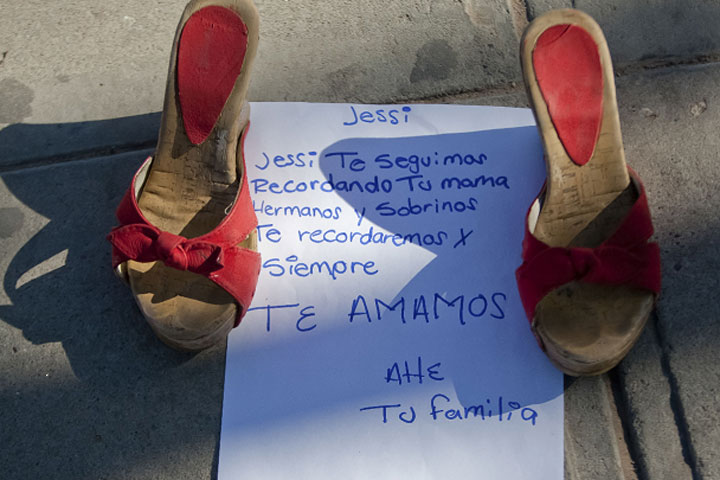 Jessi
Jessi Te seguimos
Recordando Tu mama
Hermanos y sobrinos
Te recordaremos x
siempre
TE AMAMOS
Atte
Tu familia